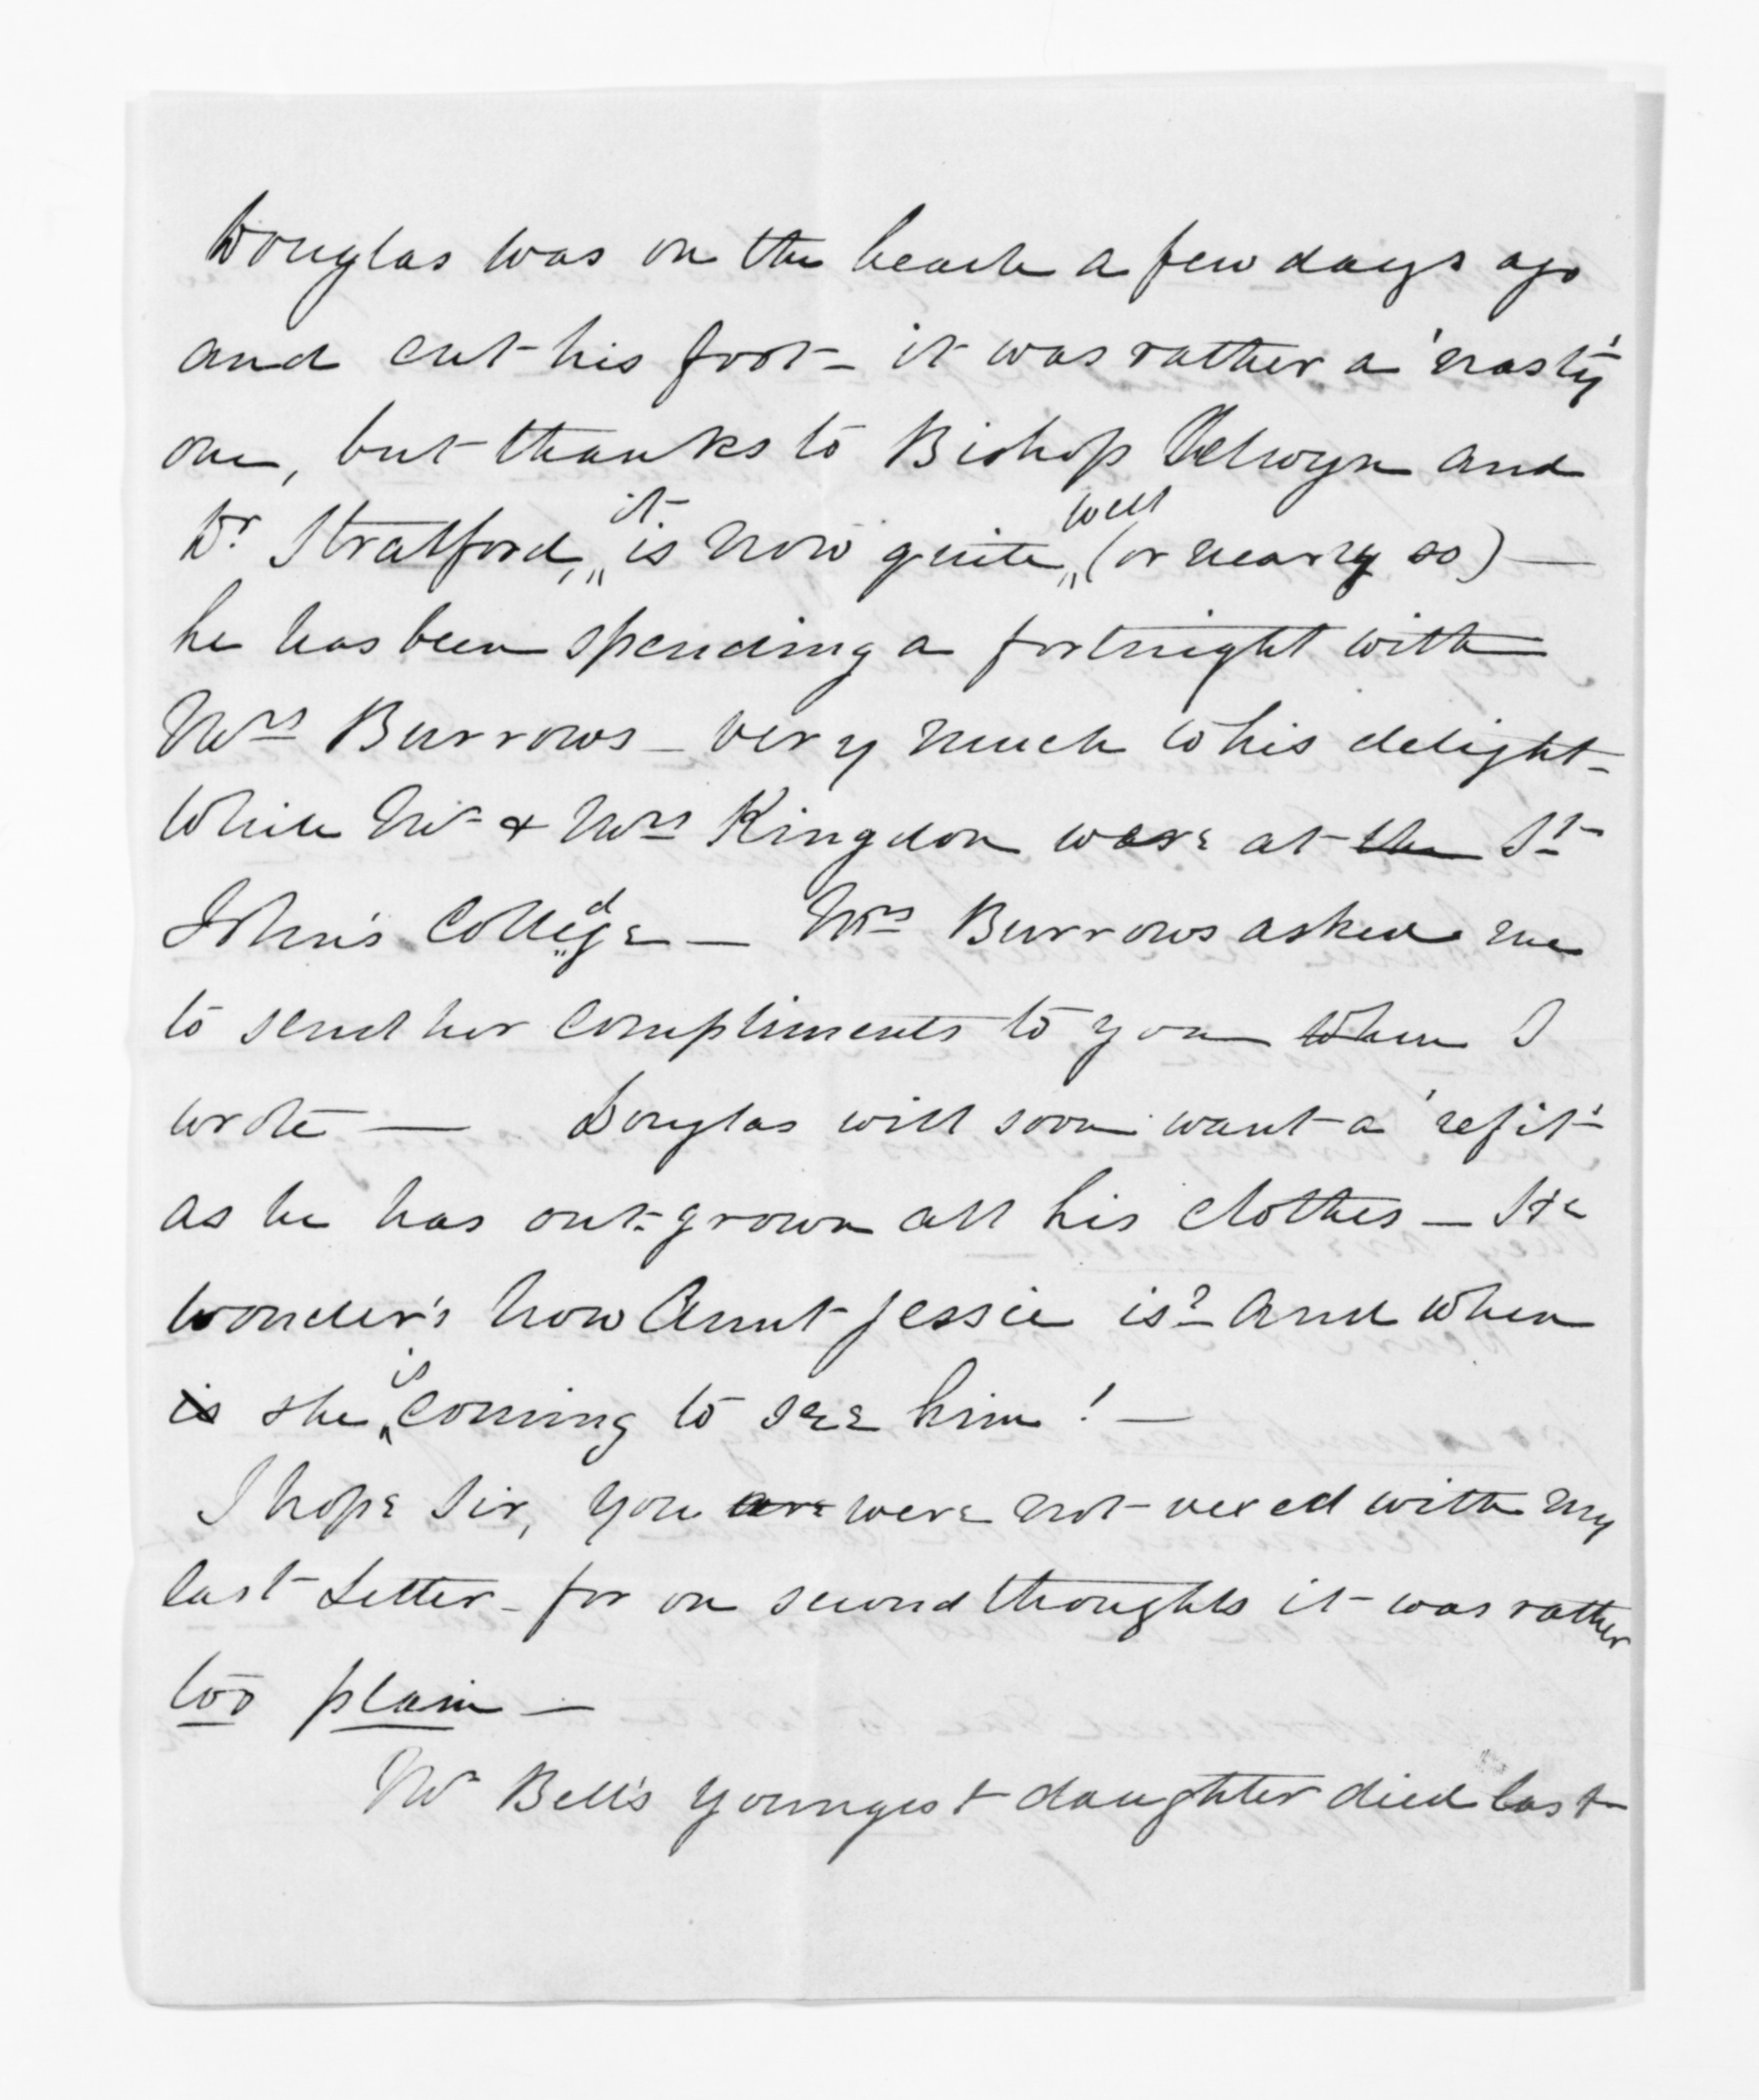 Douglas was on the beach a few days ago
and cut his foot - it was rather a 'nasty'
one, but thanks to Bishop Selwyn and
Dr. Stratford, it is now quite well (or nearly so) —
he has been spending a fortnight with
Mrs Burrows - very much to his delight -
While Mr & Mrs Kingdon were at the St
John's Colledge — Mrs Burrows asked me
to send her compliments to you when I
wrote — Douglas will soon want a 'refit'
as he has out-grown all his clothes — He
wonder's how Aunt Jessie is? and when
is she is coming to see him! —
I hope Sir, you are were not vexed with my
last Letter - for on second thoughts it was rather
too plain —
Mr Bell's youngest daughter died last